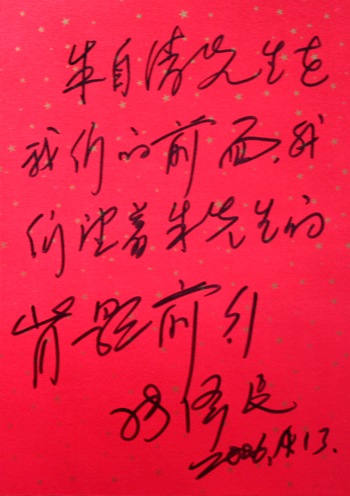 朱自清先生在
我们的前面,我
们望着朱先生的
背影前行
2006.4.13.